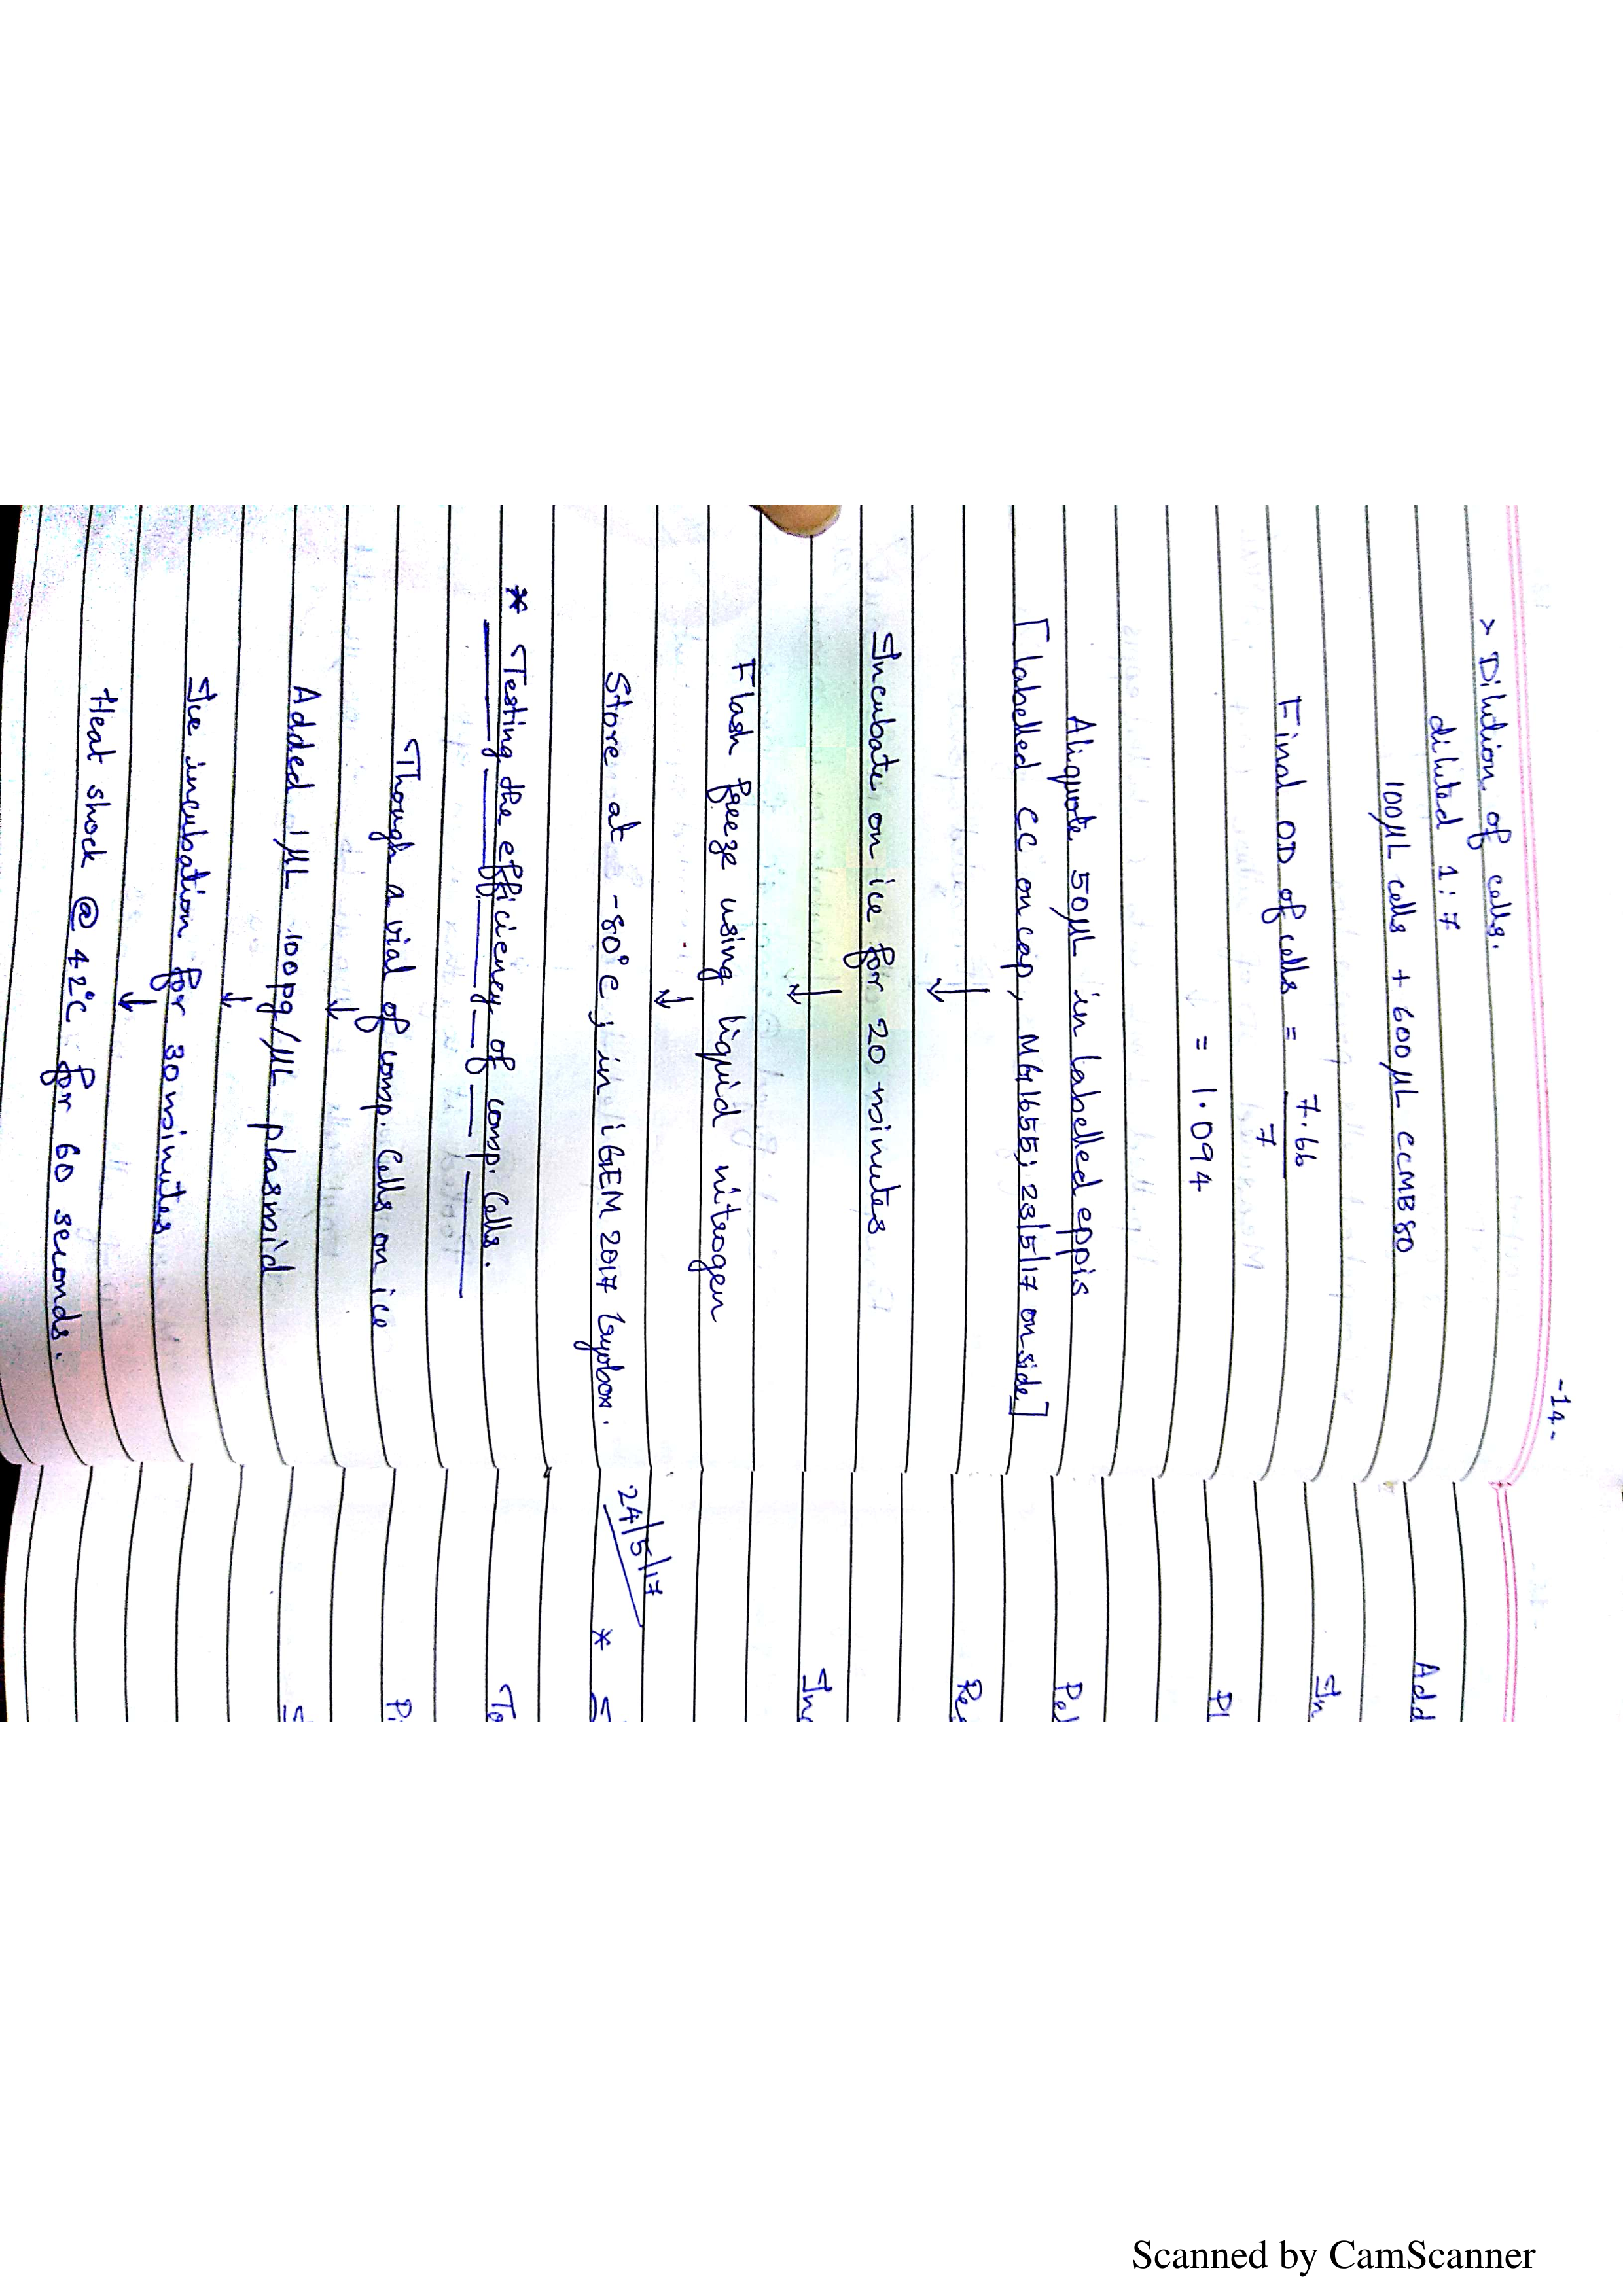 -14-
> Dilution of cells.
diluted 1:7
100µL cells + 600µL CCMB80
Final OD of cells = 7.66
7
= 1.094
Aliquote 50µL in labelled eppis
[labelled CC on cap, MG1655; 23/5/17 on side]
↓
Incubate on ice for 20 minutes
↓
Flash freeze using liquid nitrogen
↓
Store at -80°C; in iGEM 2017 cryobox.
* Testing the efficiency of comp. Cells.
Though a vial of comp. Cells on ice
↓
Added 1µL 100pg/µL plasmid
↓
Ice incubation for 30 minutes
↓
Heat shock @ 42°C for 60 seconds.
Add
In
Pl
Pel
Re
Inc
24/5/17
*
To
Scanned by CamScanner